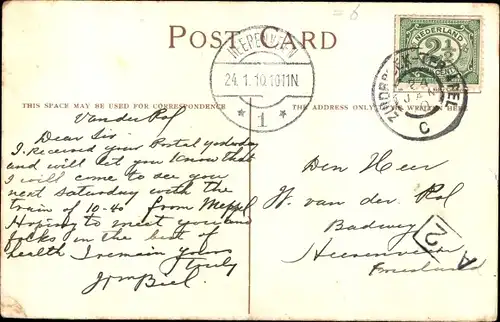 = 6
POST CARD
HEERENVEEN
24.1.10.1011N
* 1 *
NEDERLAND
2½
CENT
24
JAN
C
THIS SPACE MAY BE USED FOR CORRESPONDENCE
THE ADDRESS ONLY TO BE WRITTEN HERE
Van der Pol
Dear Sir
I received your Postal yesterday
and will let you know that
I will come to see you
next Saturday with the
train of 10-40 from Meppel
Hoping to meet you and
folks in the best of
health I remain yours
truly
Den Heer
W. van der Pol
Badweg
Heerenveen
Friesland
A
2